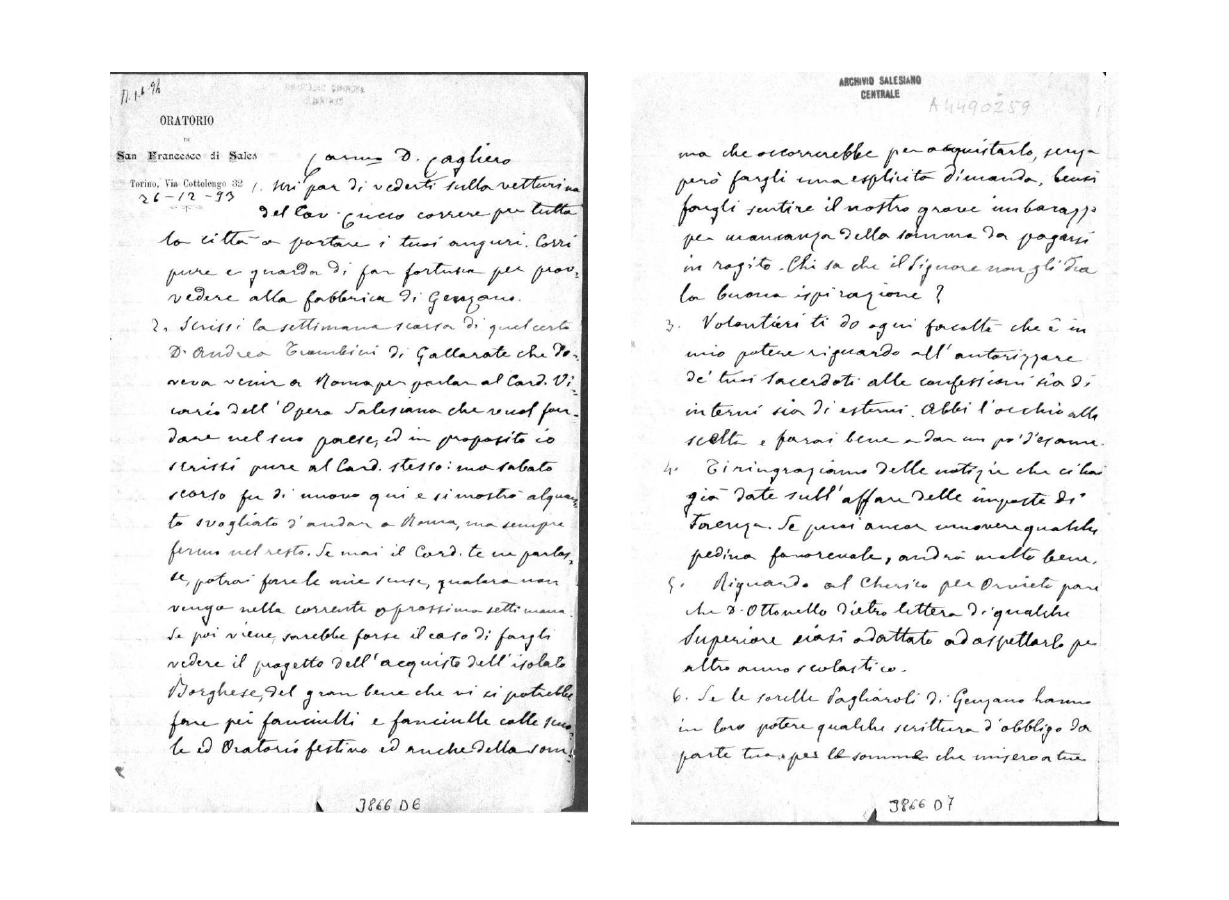 ORATORIO
DI
San Francesco di Sales
Torino, Via Cottolengo 32
26-12-93
Carmo D. Cagliero
1. Mi par di vederti sulla vetturina
del Cav. Cuccо correre per tutta
la città a portare i tuoi auguri. Corri
pure e guarda di far fortuna per prov-
vedere alla fabbrica di Genzano.
2. Scrissi la settimana scorsa di quel certo
D. Andrea Trombini di Gallarate che do-
veva venir a Roma per parlar al Card. Vi-
cario dell'Opera Salesiana che vuol fon-
dare nel suo paese, ed in proposito io
scrissi pure al Card. stesso: ma sabato
scorso fu di nuovo qui e si mostrò alquan-
to svogliato d'andar a Roma, ma sempre
fermo nel resto. Se mai il Card. te ne parlas-
se, potrai fare le mie scuse, qualora non
venga nella corrente o prossima settimana.
Se poi viene, sarebbe forse il caso di fargli
vedere il progetto dell'acquisto dell'isolato
Borghese, del gran bene che vi si potrebbe
fare pei fanciulli e fanciulle colle scuo-
le ed Oratorio festivo ed anche della som-
3866 D6
ARCHIVIO SALESIANO
CENTRALE
A4490259
ma che occorrerebbe per acquistarlo, senza
però fargli una esplicita dimanda, bensì
fargli sentire il nostro grave imbarazzo
per mancanza della somma da pagarsi
in rogito. Chi sa che il Signore non gli dia
la buona ispirazione?
3. Volontieri ti do ogni facoltà che è in
mio potere riguardo all'autorizzare
de' tuoi sacerdoti alle confessioni sia di
interni sia di esterni. Abbi l'occhio alla
scelta e farai bene a dar un po' d'esame.
4. Ti ringraziamo delle notizie che ci hai
già date sull'affare delle imposte di
Faenza. Se puoi ancor muovere qualche
pedina favorevole, andrà molto bene.
5. Riguardo al Chierico per Orvieto pare
che D. Ottonello dietro lettera di qualche
Superiore siasi adattato ad aspettarlo per
altro anno scolastico.
6. Se le sorelle Pagliaroli di Genzano hanno
in loro potere qualche scrittura d'obbligo da
parte tua, per le somme che misero a tue
3866 D7